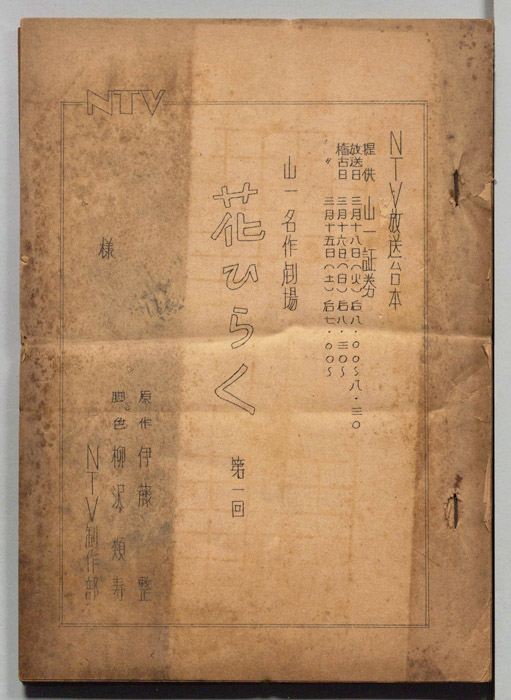 NTV
NTV放送台本
提供 山一証券
放送日 三月十八日(火)后八・〇〇～八・三〇
稽古日 三月十六日(日)后八・三〇～
〃 三月十五日(土)后七・〇〇～
山一名作劇場
花ひらく
第一回
様
原作 伊藤 整
脚色 柳沢類寿
NTV制作部